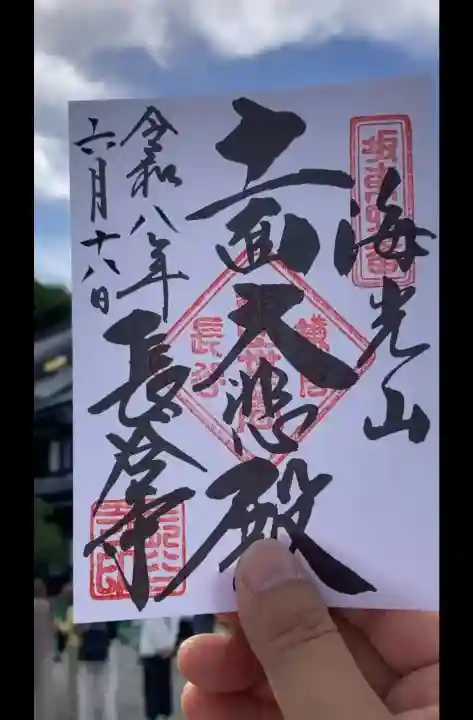 海光山
十一面大悲殿
長谷寺
令和八年
六月十八日
坂東四番
鎌倉
長谷